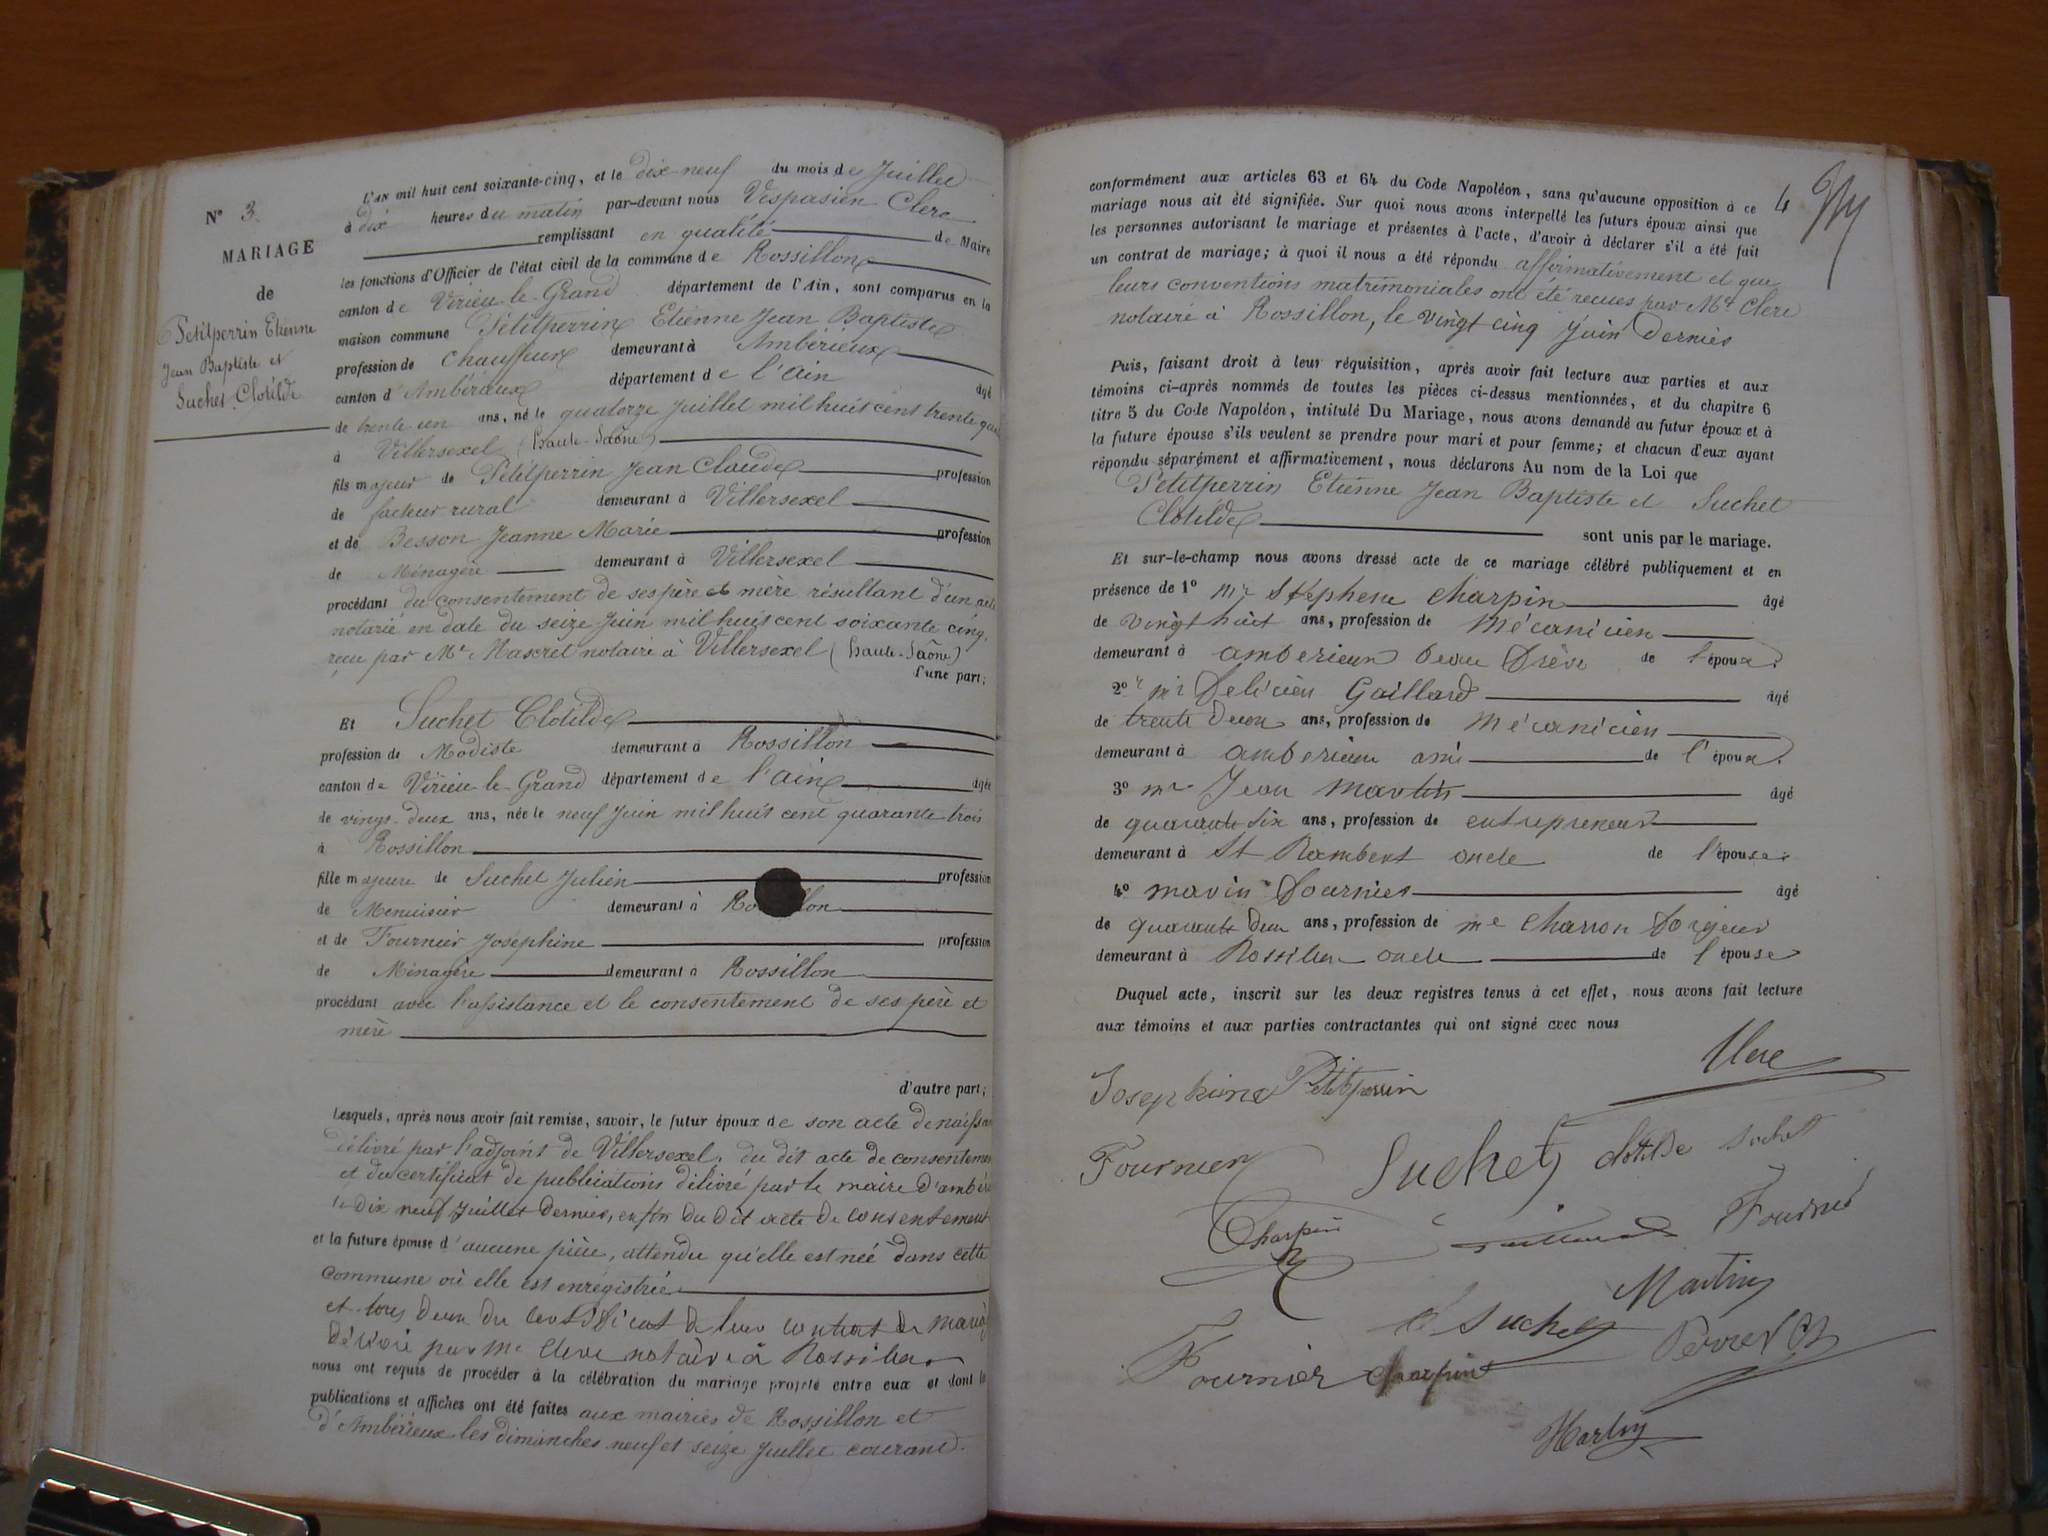 N° 3.
MARIAGE
de
Petitperrin Etienne
Jean Baptiste et
Suchet Clotilde
L'AN mil huit cent soixante-cinq, et le dix-neuf du mois de Juillet
à dix heures du matin par-devant nous Vespasien Clerc
remplissant en qualité de Maire
les fonctions d'Officier de l'état civil de la commune de Rossillon
canton de Virieu le-Grand département de l'Ain, sont comparus en la
maison commune Petitperrin Etienne Jean Baptiste
profession de Chauffeur demeurant à Ambérieux
canton d'Ambérieux département de l'ain âgé
de trente un ans, né le quatorze Juillet mil huit cent trente
à Villersexel (haute-Saône)
fils majeur de Petitperrin Jean Claude profession
de facteur rural demeurant à Villersexel
et de Besson Jeanne Marie profession
de Ménagère demeurant à Villersexel
procédant du consentement de ses père et mère résultant d'un acte
notarié en date du seize Juin mil huit cent soixante cinq,
reçu par Me Mascret notaire à Villersexel (haute-Saône)
d'une part;
Et Suchet Clotilde
profession de Modiste demeurant à Rossillon
canton de Virieu le-Grand département de l'ain âgée
de vingt-deux ans, née le neuf Juin mil huit cent quarante trois
à Rossillon
fille majeure de Suchet Julien profession
de Menuisier demeurant à Ro llon
et de Fournier Joséphine profession
de Ménagère demeurant à Rossillon
procédant avec l'assistance et le consentement de ses père et
mère
d'autre part;
Lesquels, après nous avoir fait remise, savoir, le futur époux de son acte de naissan
délivré par l'adjoint de Villersexel, du dit acte de consentemen
et du certificat de publications délivré par le maire d'ambéri
le dix neuf Juillet dernier, enfin du dit acte de consentement
et la future épouse d'aucune pièce, attendu qu'elle est née dans cette
commune où elle est enregistrée
et tous deux du certificat de leur contrat de maria
délivré par Me Clerc notaire à Rossillon
nous ont requis de procéder à la célébration du mariage projeté entre eux et dont le
publications et affiches ont été faites aux mairies de Rossillon et
d'Ambérieux les dimanches neuf et seize Juillet courant.
4
conformément aux articles 63 et 64 du Code Napoléon, sans qu'aucune opposition à ce
mariage nous ait été signifiée. Sur quoi nous avons interpellé les futurs époux ainsi que
les personnes autorisant le mariage et présentes à l'acte, d'avoir à déclarer s'il a été fait
un contrat de mariage; à quoi il nous a été répondu affirmativement et que
leurs conventions matrimoniales ont été reçues par Me Clerc
notaire à Rossillon, le vingt cinq Juin dernier
Puis, faisant droit à leur réquisition, après avoir fait lecture aux parties et aux
témoins ci-après nommés de toutes les pièces ci-dessus mentionnées, et du chapitre 6
titre 5 du Code Napoléon, intitulé Du Mariage, nous avons demandé au futur époux et à
la future épouse s'ils veulent se prendre pour mari et pour femme; et chacun d'eux ayant
répondu séparément et affirmativement, nous déclarons Au nom de la Loi que
Petitperrin Etienne Jean Baptiste et Suchet
Clotilde sont unis par le mariage.
Et sur-le-champ nous avons dressé acte de ce mariage célébré publiquement et en
présence de 1° Mr Stéphene Charpin âgé
de vingt huit ans, profession de Mécanicien
demeurant à amberieux beau frère de l'époux.
2° mr Félicien Gaillard âgé
de trente deux ans, profession de Mécanicien
demeurant à amberieux ami de l'époux.
3° mr Jean Martin âgé
de quarante six ans, profession de entrepreneur
demeurant à St Rambert oncle de l'épouse
4° marin Fournier âgé
de quarante deux ans, profession de me Charron forgeur
demeurant à Rossillon oncle de l'épouse
Duquel acte, inscrit sur les deux registres tenus à cet effet, nous avons fait lecture
aux témoins et aux parties contractantes qui ont signé avec nous
Clerc
Josephine Petitperrin
Fournier Suchet Clotilde Suchet
Charpin Gaillard Fournié
Martin
Suchet Perret
Fournier Charpin
Martin